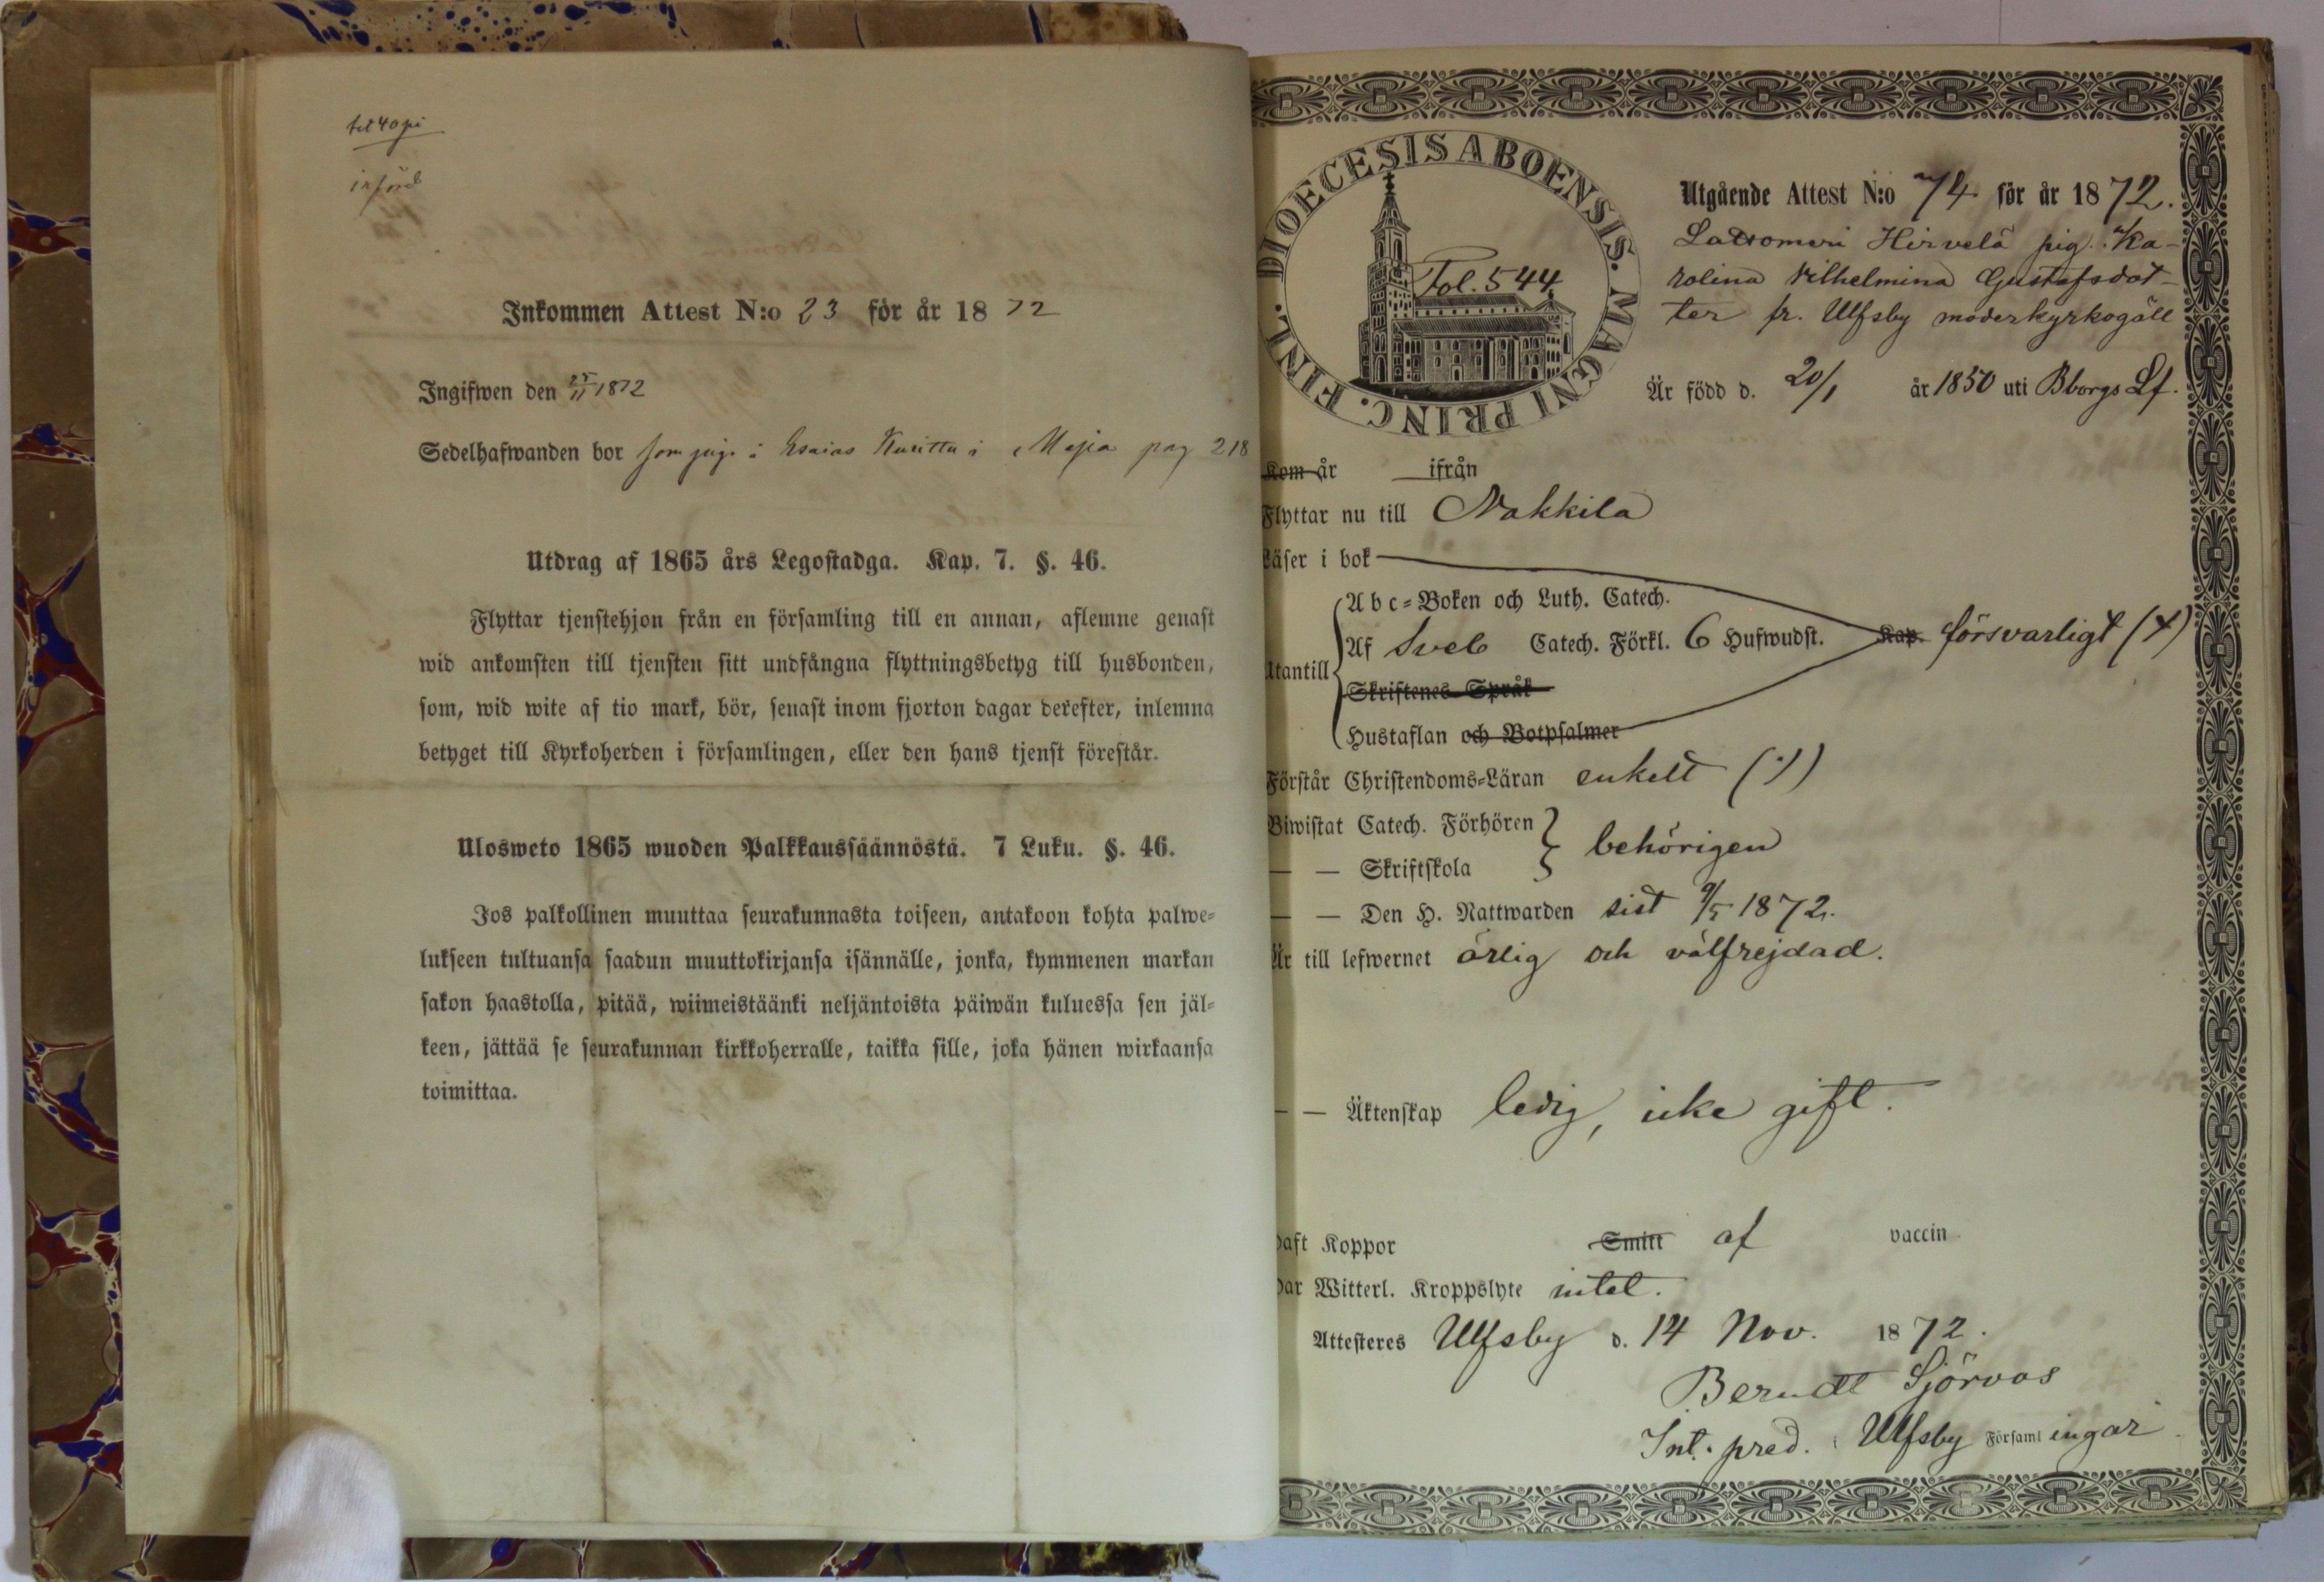 införd
Inkommen Attest N:o 23 för år 1872
Ingifwen den 25/11 1872
Sedelhafwanden bor som piga i Esaias Kuritta i pag 218
Utdrag af 1865 års Legostadga. Kap. 7. §. 46.
Flyttar tjenstehjon från en församling till en annan, aflemne genast
wid ankomsten till tjensten sitt undfångna flyttningsbetyg till husbonden,
som, wid wite af tio mark, bör, senast inom fjorton dagar derefter, inlemna
betyget till Kyrkoherden i församlingen, eller den hans tjenst förestår.
Ulosweto 1865 wuoden Palkkaussäännöstä. 7 Luku. §. 46.
Jos palkollinen muuttaa seurakunnasta toiseen, antakoon kohta palwe=
lukseen tultuansa saadun muuttokirjansa isännälle, jonka, kymmenen markan
sakon haastolla, pitää, wiimeistäänki neljäntoista päiwän kuluessa sen jäl=
keen, jättää se seurakunnan kirkkoherralle, taikka sille, joka hänen wirkaansa
toimittaa.
DIOECESIS ABOENSIS. MAGNI PRINC. FINL.
Fol. 544
Utgående Attest N:o 74 för år 1872.
Lattomeri Hirvelä pig. Ka-
rolina Vilhelmina Gustafsdot-
ter fr. Ulfsby moderkyrkogäll
Är född d. 20/1 år 1850 uti Bborgs Lf.
Kom år ifrån
Flyttar nu till Nakkila
Läser i bok
Utantill
Abc=Boken och Luth. Catech.
Af Sveb Catech. Förkl. 6 Hufwudst. Kap. försvarligt (+)
Skriftenes Språk
Hustaflan och Botpsalmer
Förstår Christendoms=Läran enkelt (/)
Biwistat Catech. Förhören
— — Skriftskola behörigen
— — Den H. Nattwarden sist 9/5 1872.
Är till lefwernet ärlig och välfrejdad.
— — Äktenskap ledig, icke gift.
Haft Koppor Smitt af vaccin
Har Witterl. Kroppslyte intet.
Attesteres Ulfsby d. 14 Nov. 1872.
Berndt Sjörvos
Int. pred. i Ulfsby Församlingar